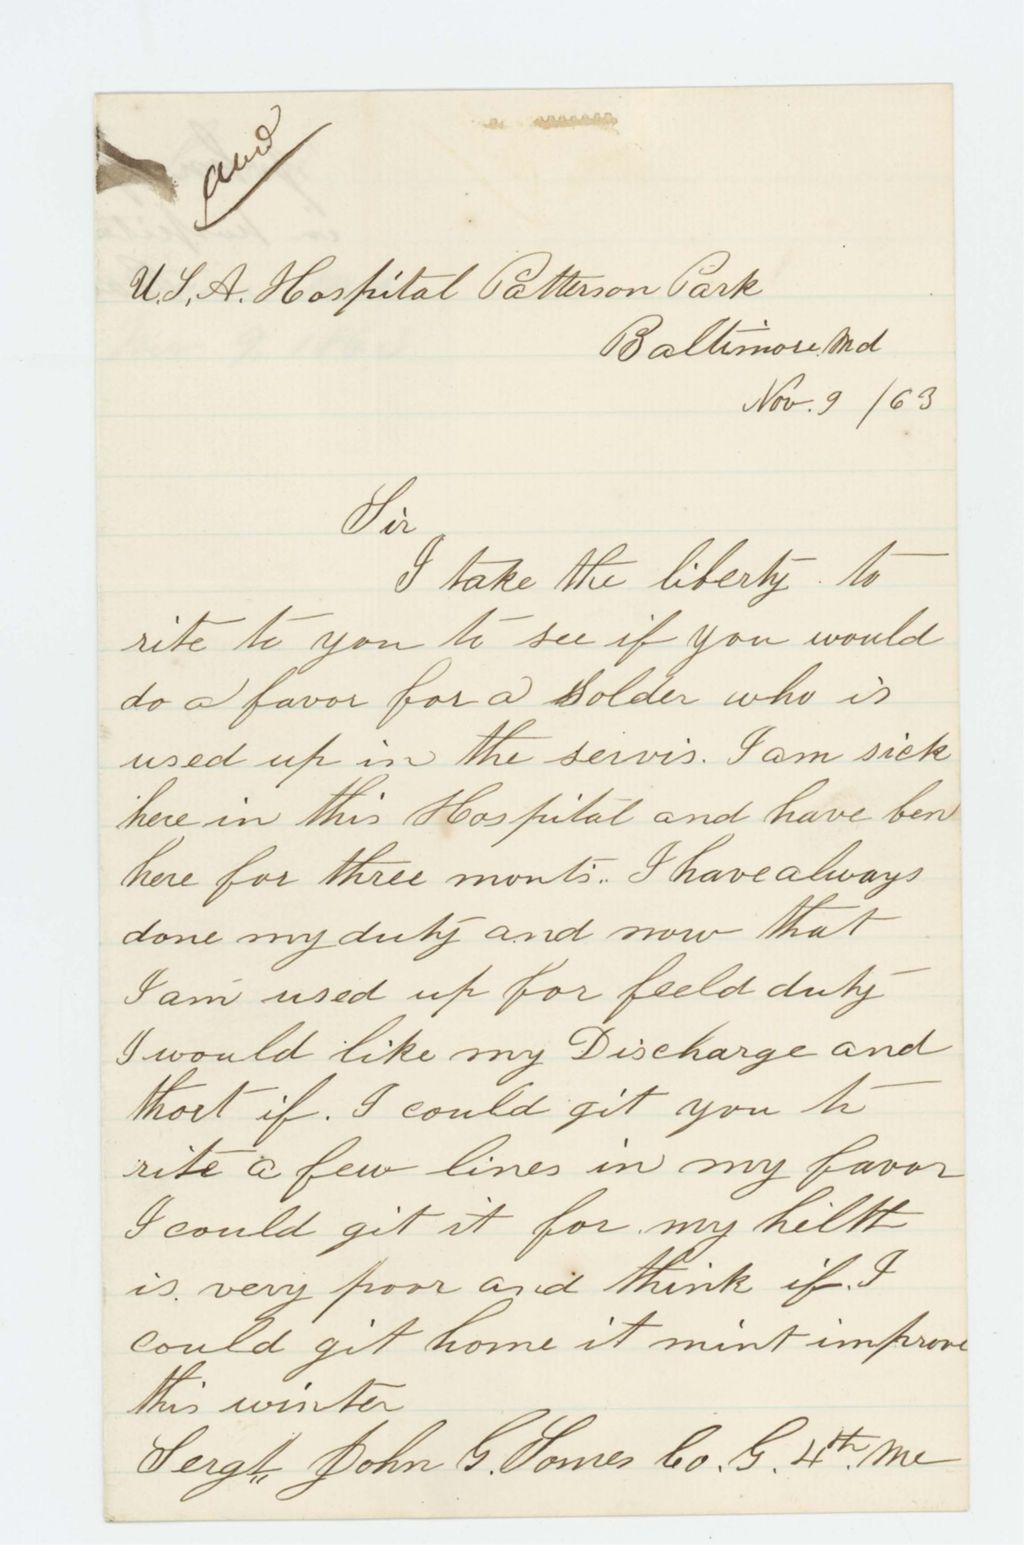 and
U.S.A. Hospital Patterson Park
Baltimore Md
Nov. 9 /63
Sir
I take the liberty to
rite to you to see if you would
do a favor for a Solder who is
used up in the servis. I am sick
here in this Hospital and have ben
here for three monts. I have always
done my duty and now that
I am used up for feeld duty
I would like my Discharge and
thort if. I could git you to
rite a few lines in my favor
I could git it for my hilth
is very poor and think if. I
could git home it mint improve
this winter
Sergt. John G. Somes Co. G. 4th. Me